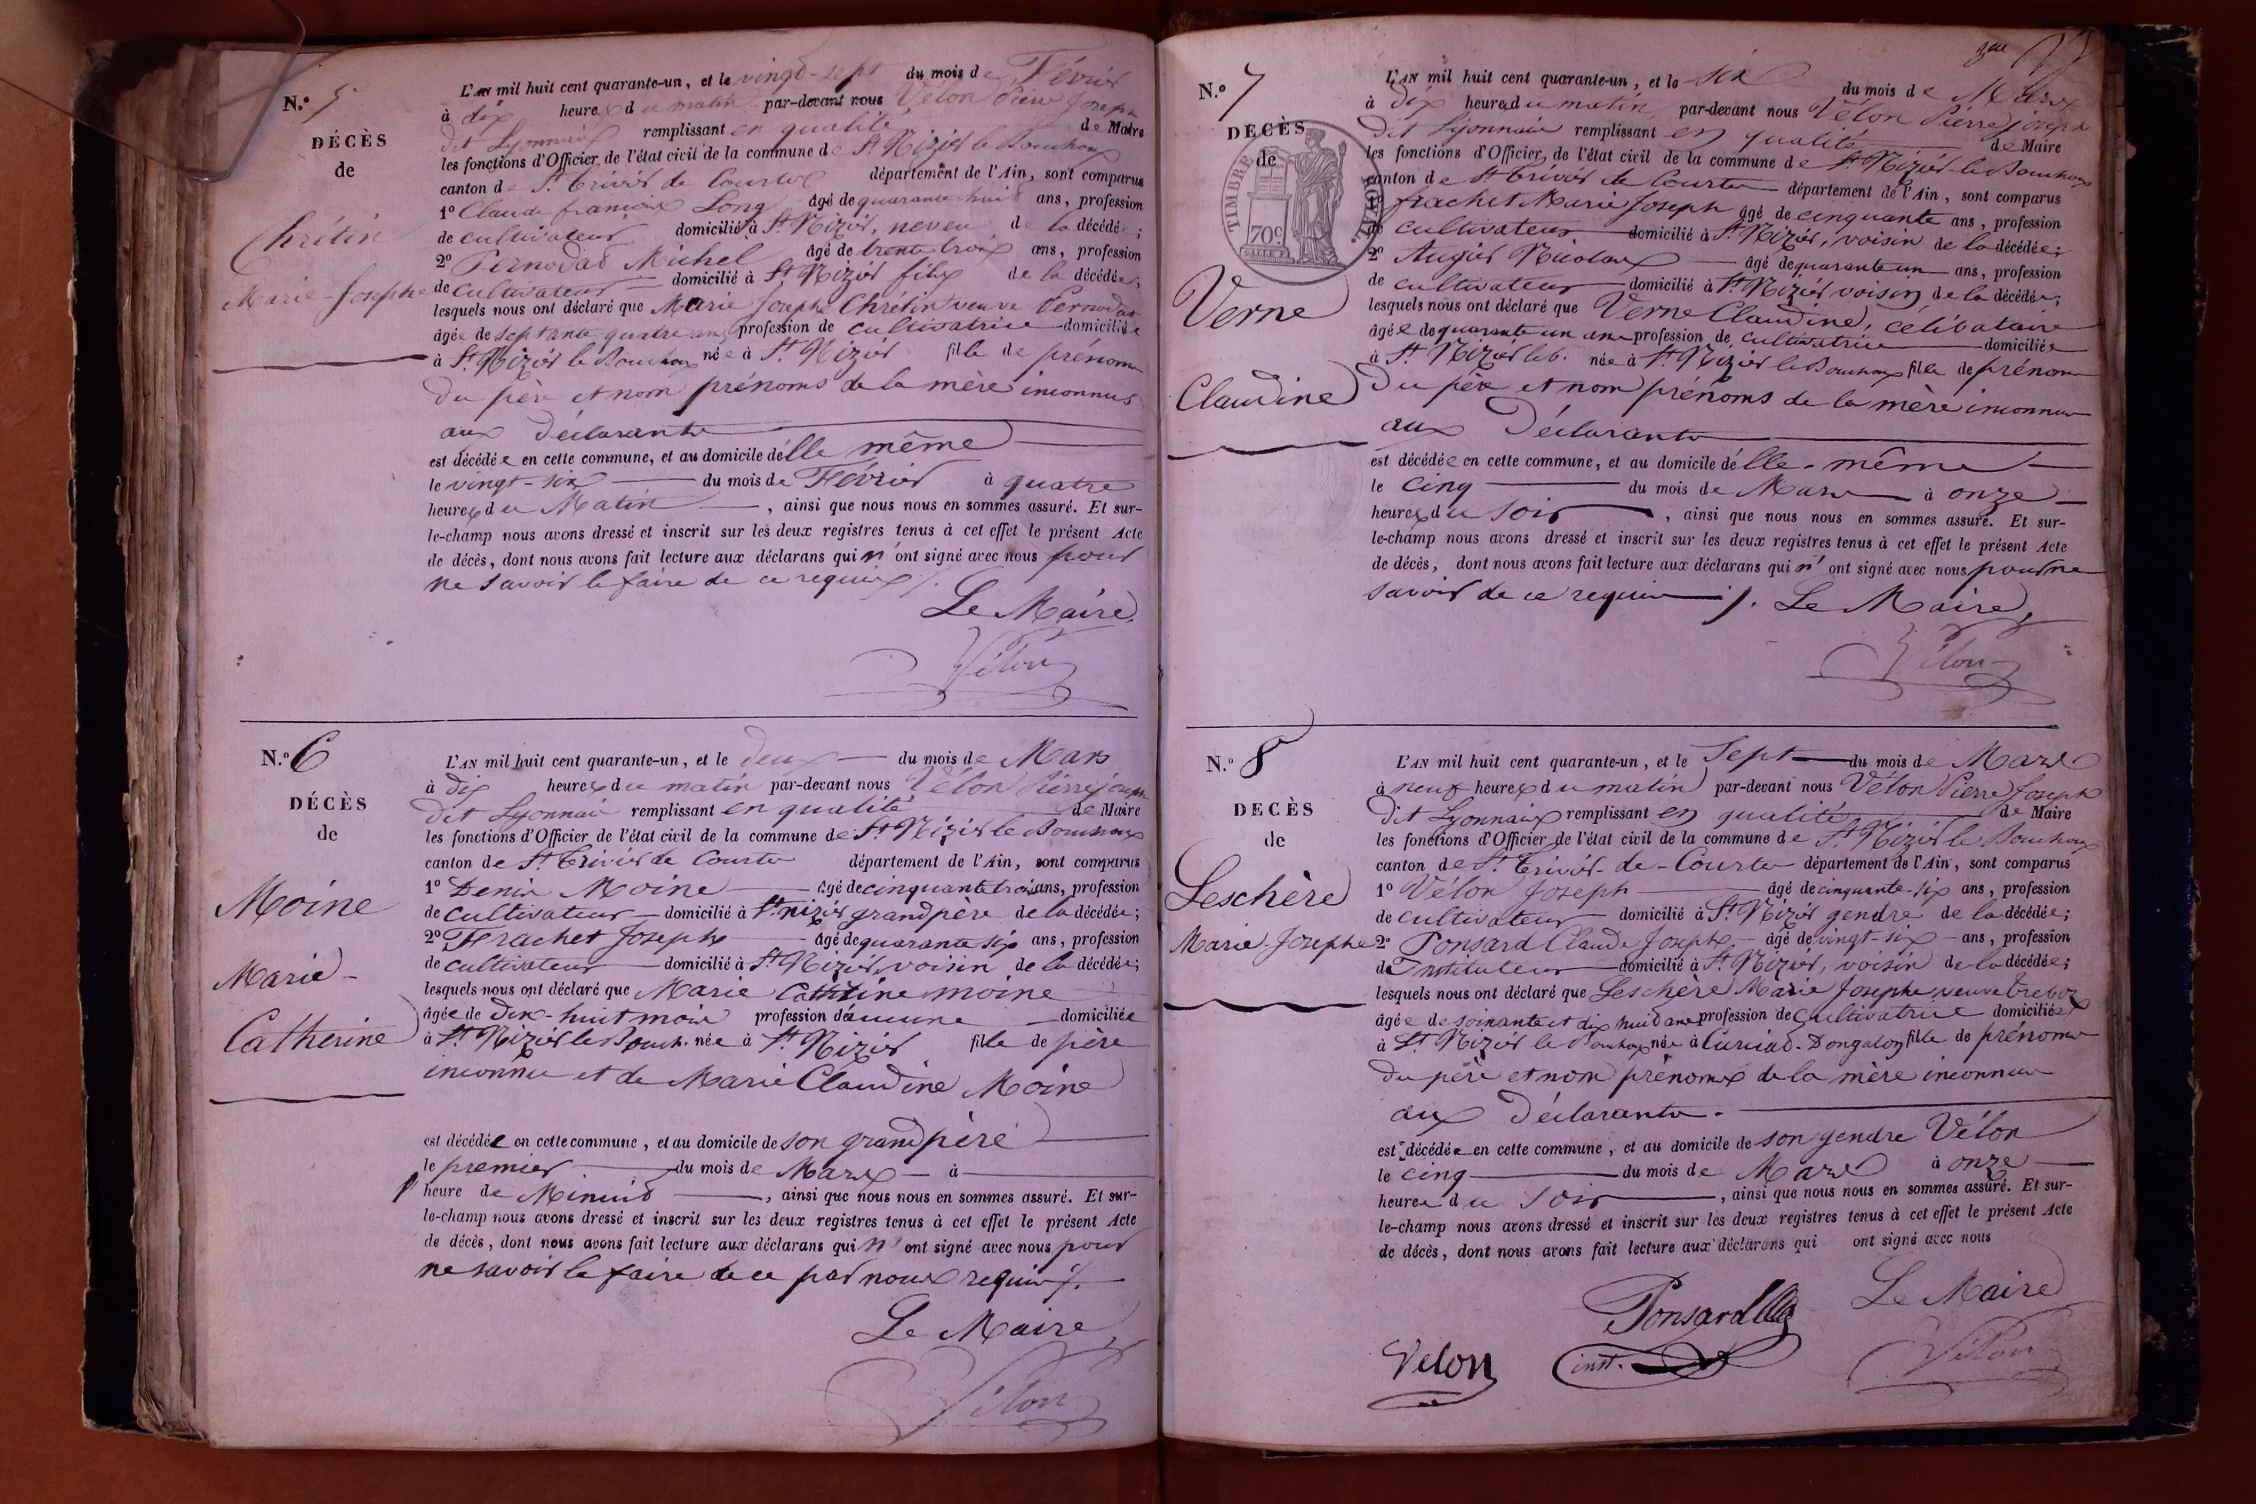 N.° 5
DÉCÈS
de
Chrétin
Marie-Josephe
L'AN mil huit cent quarante-un, et le vingt-sept du mois de Février
à dix heures du matin par-devant nous Vélon Pierre Joseph
dit Lyonnais remplissant en qualité de Maire
les fonctions d'Officier de l'état civil de la commune de St Nizier le Bouchoux
canton de St Trivier de Courtes département de l'Ain, sont comparus
1° Claude françois Long âgé de quarante huit ans, profession
de cultivateur domicilié à St Nizier, neveu de la décédée;
2° Pernodas Michel âgé de trente trois ans, profession
de cultivateur domicilié à St Nizier fils de la décédée;
lesquels nous ont déclaré que Marie Josephe Chrétin veuve Pernodas
âgée de septante quatre ans profession de cultivatrice domiciliée
à St Nizier le Bouchoux née à St Nizier fille de prénoms
du père et nom prénoms de la mère inconnus
aux Déclarants
est décédée en cette commune, et au domicile d'elle même
le vingt-six du mois de Février à quatre
heures du Matin, ainsi que nous nous en sommes assuré. Et sur-
le-champ nous avons dressé et inscrit sur les deux registres tenus à cet effet le présent Acte
de décès, dont nous avons fait lecture aux déclarans qui n'ont signé avec nous pour
ne savoir le faire de ce requis /.
Le Maire
Vélon
N.° 6
DÉCÈS
de
Moine
Marie-
Catherine
L'AN mil huit cent quarante-un, et le deux du mois de Mars
à dix heures du matin par-devant nous Vélon Pierre joseph
dit Lyonnais remplissant en qualité de Maire
les fonctions d'Officier de l'état civil de la commune de St Nizier le Bouchoux
canton de St Trivier de Courtes département de l'Ain, sont comparus
1° Denis Moine âgé de cinquante trois ans, profession
de cultivateur domicilié à St nizier grand père de la décédée;
2° Frachet Joseph âgé de quarante six ans, profession
de cultivateur domicilié à St Nizier, voisin de la décédée;
lesquels nous ont déclaré que Marie Catherine moine
âgée de Dix-huit mois profession d'aucune domiciliée
à St Nizier le Bouch. née à St Nizier fille de père
inconnu et de Marie Claudine Moine
est décédée en cette commune, et au domicile de son grand père
le premier du mois de Mars à
heure de Minuit, ainsi que nous nous en sommes assuré. Et sur-
le-champ nous avons dressé et inscrit sur les deux registres tenus à cet effet le présent Acte
de décès, dont nous avons fait lecture aux déclarans qui n'ont signé avec nous pour
ne savoir le faire de ce par nous requis /.
Le Maire
Vélon
N.° 7
DÉCÈS
de
TIMBRE ROYAL
70c
Verne
Claudine
L'AN mil huit cent quarante-un, et le six du mois de Mars
à dix heures du matin par-devant nous Vélon Pierre joseph
dit Lyonnais remplissant en qualité de Maire
les fonctions d'Officier de l'état civil de la commune de St Nizier-le-Bouchoux
canton de St Trivier de Courtes département de l'Ain, sont comparus
1° frachet Marie Joseph âgé de cinquante ans, profession
de cultivateur domicilié à St Nizier, voisin de la décédée;
2° Augier Nicolas âgé de quarante un ans, profession
de cultivateur domicilié à St Nizier voisin de la décédée;
lesquels nous ont déclaré que Verne Claudine, célibataire
âgée de quarante un ans profession de cultivatrice domiciliée
à St Nizier le b. née à St Nizier le Bouchoux fille de prénoms
du père et nom prénoms de la mère inconnus
aux Déclarants
est décédée en cette commune, et au domicile d'elle-même
le cinq du mois de Mars à onze
heures du soir, ainsi que nous nous en sommes assuré. Et sur-
le-champ nous avons dressé et inscrit sur les deux registres tenus à cet effet le présent Acte
de décès, dont nous avons fait lecture aux déclarans qui n'ont signé avec nous pour ne
savoir de ce requis /. Le Maire,
Vélon
N.° 8
DÉCÈS
de
Leschère
Marie-Josephe
L'AN mil huit cent quarante-un, et le Sept du mois de Mars
à neuf heures du matin par-devant nous Vélon Pierre Joseph
dit Lyonnais remplissant en qualité de Maire
les fonctions d'Officier de l'état civil de la commune de St Nizier le Bouchoux
canton de St Trivier-de-Courtes département de l'Ain, sont comparus
1° Vélon Joseph âgé de cinquante-six ans, profession
de cultivateur domicilié à St Nizier gendre de la décédée;
2° Ponsard Claude Joseph âgé de vingt-six ans, profession
d'Instituteur domicilié à St Nizier, voisin de la décédée;
lesquels nous ont déclaré que Leschère Marie Josephe veuve
âgée de soixante et dix huit ans profession de cultivatrice domiciliée
à St Nizier le Bouchoux née à Curciat-Dongalon fille de prénoms
du père et nom prénoms de la mère inconnus
aux Déclarants.
est décédée en cette commune, et au domicile de son gendre Vélon
le cinq du mois de Mars à onze
heures du Soir, ainsi que nous nous en sommes assuré. Et sur-
le-champ nous avons dressé et inscrit sur les deux registres tenus à cet effet le présent Acte
de décès, dont nous avons fait lecture aux déclarans qui ont signé avec nous
Le Maire
Ponsard
inst.
Velon
Vélon